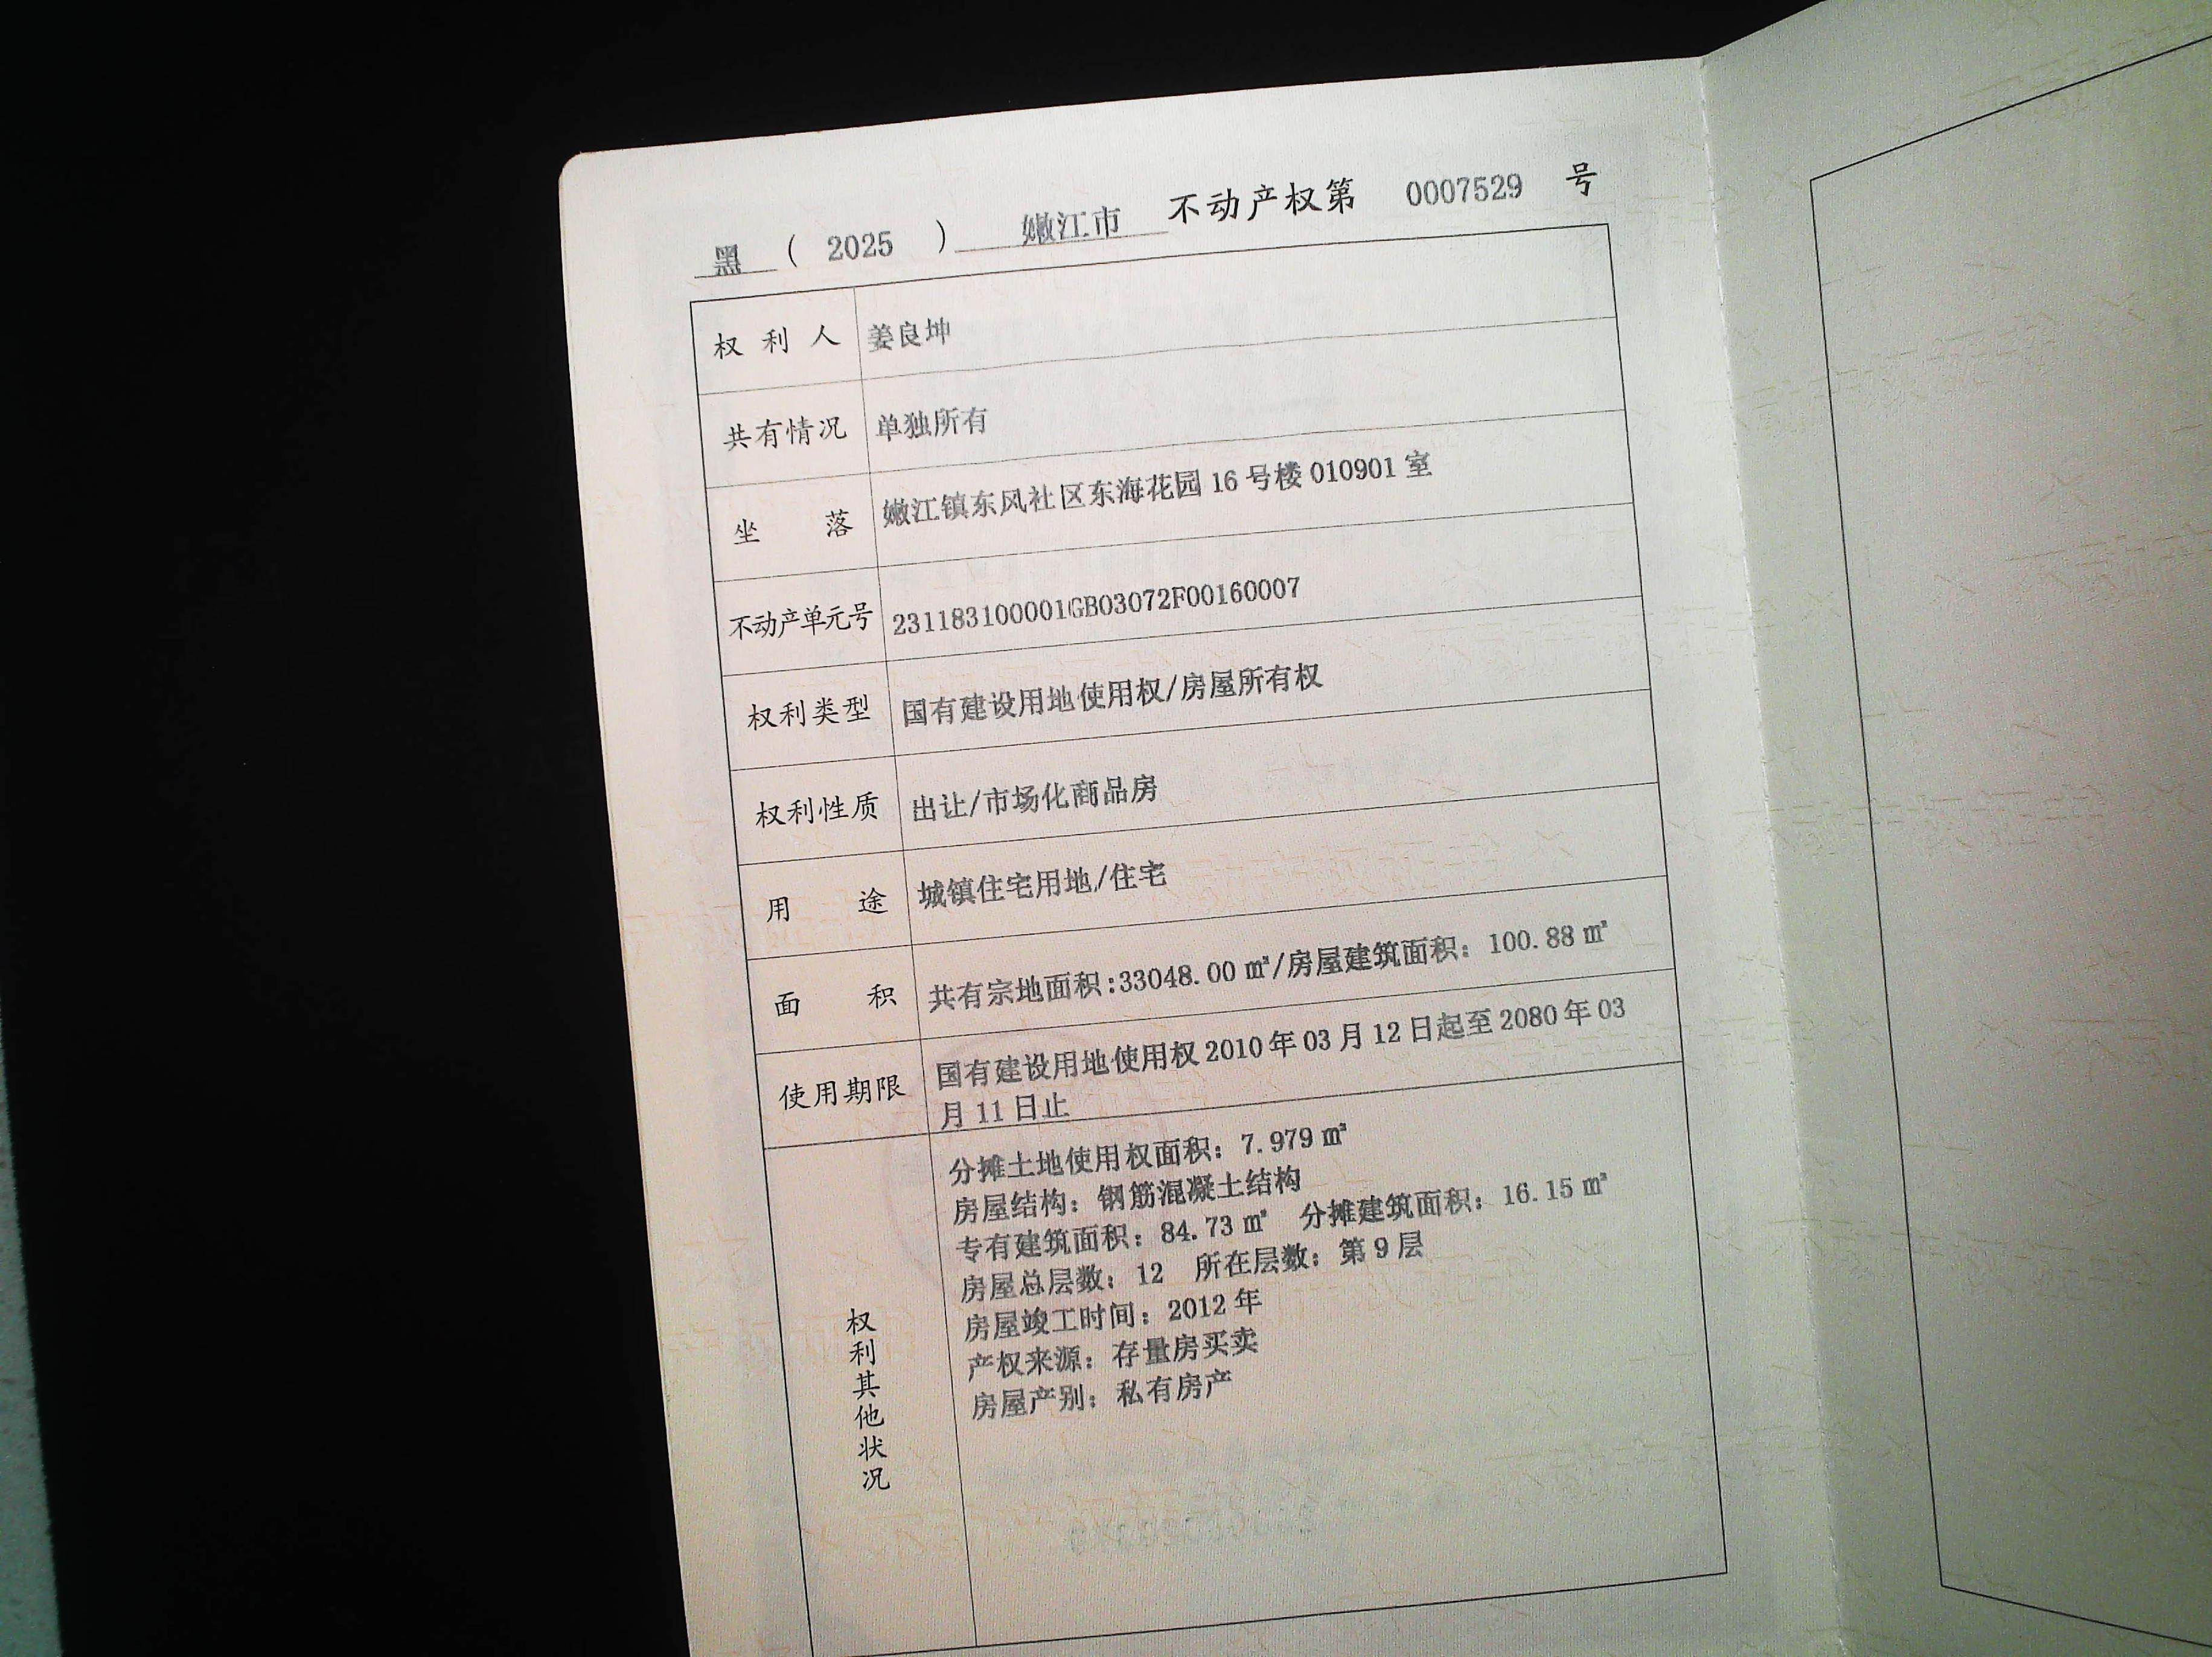 黑 ( 2025 ) 嫩江市 不动产权第 0007529 号
权利人 姜良坤
共有情况 单独所有
坐落 嫩江镇东风社区东海花园16号楼010901室
不动产单元号 231183100001GB03072F00160007
权利类型 国有建设用地使用权/房屋所有权
权利性质 出让/市场化商品房
用途 城镇住宅用地/住宅
面积 共有宗地面积:33048.00㎡/房屋建筑面积：100.88㎡
使用期限 国有建设用地使用权2010年03月12日起至2080年03
月11日止
权利其他状况
分摊土地使用权面积：7.979㎡
房屋结构：钢筋混凝土结构
专有建筑面积：84.73㎡ 分摊建筑面积：16.15㎡
房屋总层数：12 所在层数：第9层
房屋竣工时间：2012年
产权来源：存量房买卖
房屋产别：私有房产